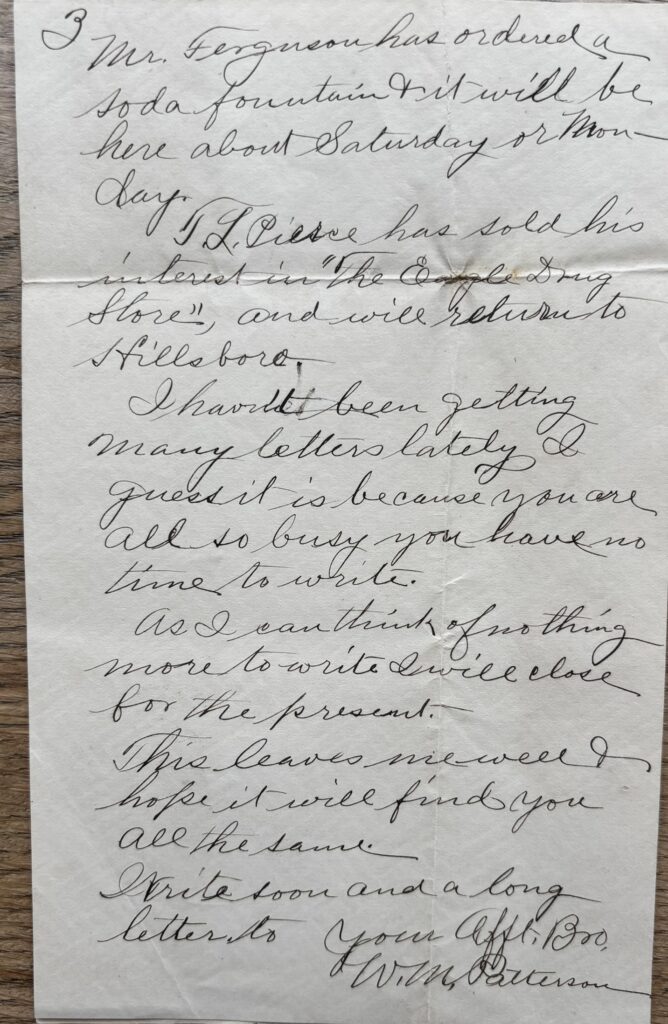 3
Mr. Ferguson has ordered a
soda fountain & it will be
here about Saturday or Mon-
day.
T. L. Pierce has sold his
interest in "The Eagle Drug
Store", and will return to
Hillsboro.
I havn't been getting
many letters lately I
guess it is because you are
all so busy you have no
time to write.
As I can think of nothing
more to write I will close
for the present.
This leaves me well &
hope it will find you
all the same.
Write soon and a long
letter to your Afft. Bro.
W. M. Patterson